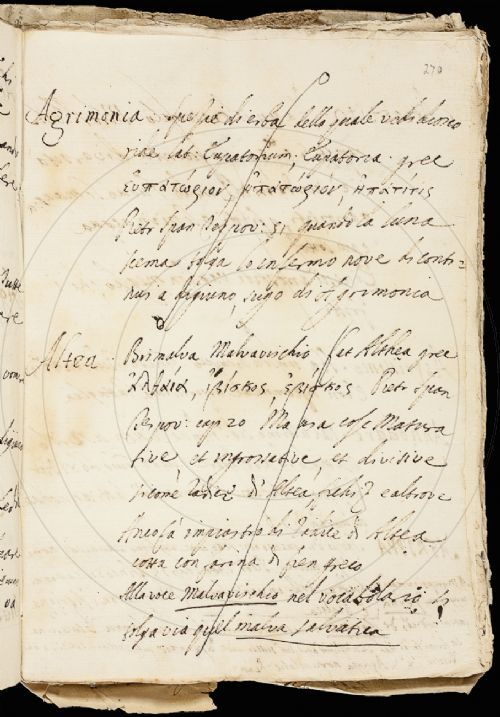 270
Agrimonia spezie di erba della quale vedi diosco
ride lat: Eupatorium, Eupatoria grec
εὐπατώριον, ἡπατώριον, ἡπάτιτις
Pietr Span Respou: 51 quando la luna
scema toga lo infermo nove di conti-
nui a digiuno, sugo di Agrimonia
Altea Bismalva Malvavischio lat Althea grec
ἀλθαία, ἰβίσκος, ἐβίσκος Pietr Span
Respou: cap 20 Ma usa cose Matura
tive et ingrossative et divisive
siccome radice di Altea, fichi e altrove
Ancosa impiastro di radice di Altea
cotta con farina di fien greco
Alla voce Malvavischio nel vocabolario si
tolga via quel malva salvatica